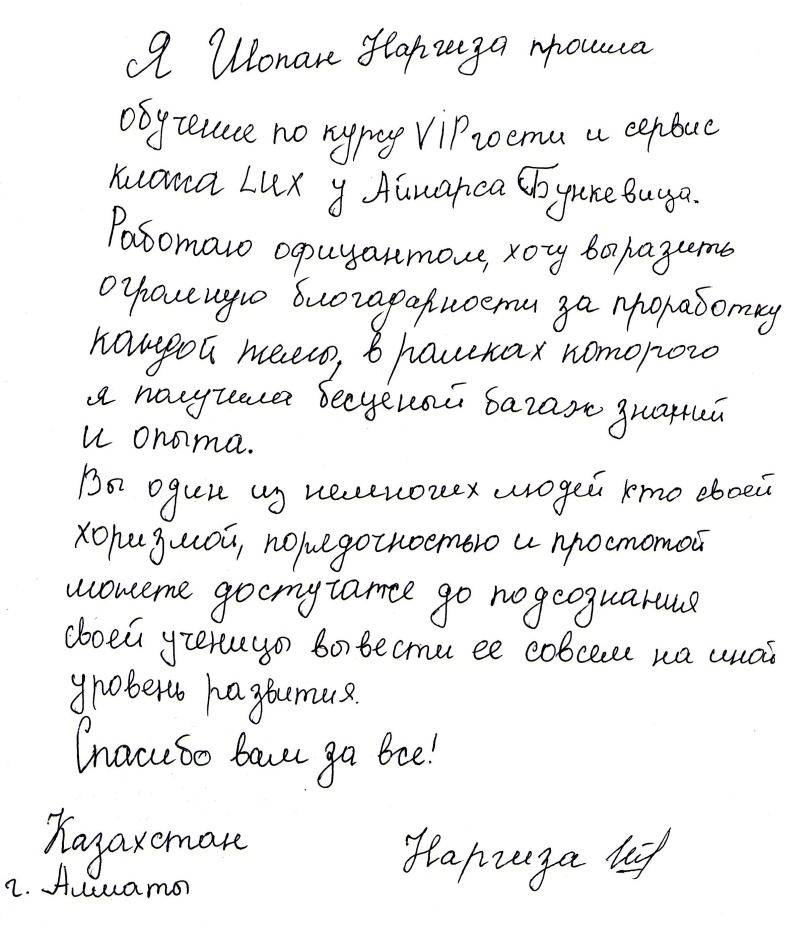 Я Шопан Наргиза прошла
обучение по курсу ViP гости и сервис
класса Lux у Айнарса Бункевица.
Работаю официантом, хочу выразить
огромную благодарности за проработку
каждой темы, в рамках которого
я получила бесценый багаж знаний
и опыта.
Вы один из немногих людей кто своей
хоризмой, порядочностью и простотой
можете достучатсе до подсознания
своей ученицы вывести ее совсем на иной
уровень развития.
Спасибо вам за все!
Казахстан
г. Алматы
Наргиза